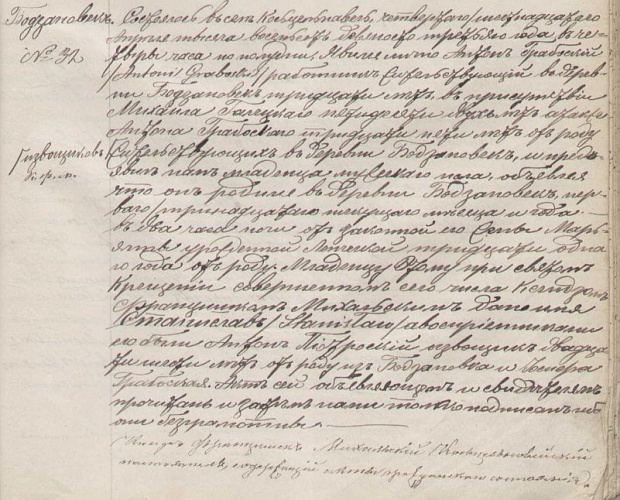 Бодзановекъ
№ 32
Состоялось въ селѣ Косцельнавесь, четвертаго /шестнадцатаго
Апрѣля тысяча восемьсотъ девяносто третьяго года, въ че-
тыре часа по полудни. Явился лично Антонъ Грабоскій
/Antoni Graboski/ работникъ жительствующій въ дерев-
ни Бодзановекъ тридцати лѣтъ, въ присутствіи
Михаила пятидесяти двухъ лѣтъ, а также
Антона Грабоскаго тридцати пяти лѣтъ отъ роду
жительствующихъ въ деревни Бодзановекъ, и предъ-
явилъ намъ младенца мужескаго пола, объявляя
что онъ родился въ деревни Бодзановекъ, пер-
ваго /тринадцатаго текущаго мѣсяца и года
въ два часа ночи отъ законной его жены Марь-
янны урожденной тридцати одна-
го года отъ роду. Младенцу этому при святомъ
Крещеніи совершенномъ сего числа Ксендзомъ
Францишкомъ Михальскимъ дано имя
Станиславъ /Stanisław/ а воспріемниками
его были Антонъ извощикъ двадца-
ти шести лѣтъ отъ роду изъ Бодзановка и
Грабоская. Актъ сей объявляющимъ и свидѣтелямъ
прочитанъ и затѣмъ нами только подписанъ ибо
они безграмотны.
Ксендзъ Францишекъ Михальскій
настоятель, содержащій акты гражданскаго состоянія.